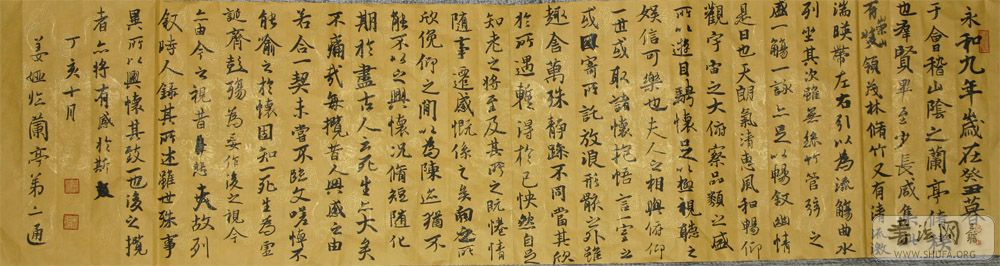 永和九年歲在癸丑暮
于會稽山陰之蘭亭
也羣賢畢至少長咸集
有崇山峻領茂林脩竹又有清流激
湍映帶左右引以為流觴曲水
列坐其次雖無絲竹管弦之
盛一觴一詠亦足以暢叙幽情
是日也天朗氣清惠風和暢仰
觀宇宙之大俯察品類之盛
所以遊目騁懷足以極視聽之
娛信可樂也夫人之相與俯仰
一世或取諸懷抱悟言一室之
或因寄所託放浪形骸之外雖
趣舍萬殊靜躁不同當其欣
於所遇暫得於己怏然自足
知老之將至及其所之既惓情
隨事遷感慨係之矣向之所
欣俛仰之間以為陳迹猶不
能不以之興懷況脩短隨化
期於盡古人云死生亦大矣
不痛哉每攬昔人興感之由
若合一契未嘗不臨文嗟悼不
能喻之於懷固知一死生為虛
誕齊彭殤為妄作後之視今
亦由今之視昔悲夫故列
叙時人錄其所述雖世殊事
異所以興懷其致一也後之攬
者亦將有感於斯文
丁亥十月
姜娅 蘭亭第二通
书法网
WWW.SHUFA.COM